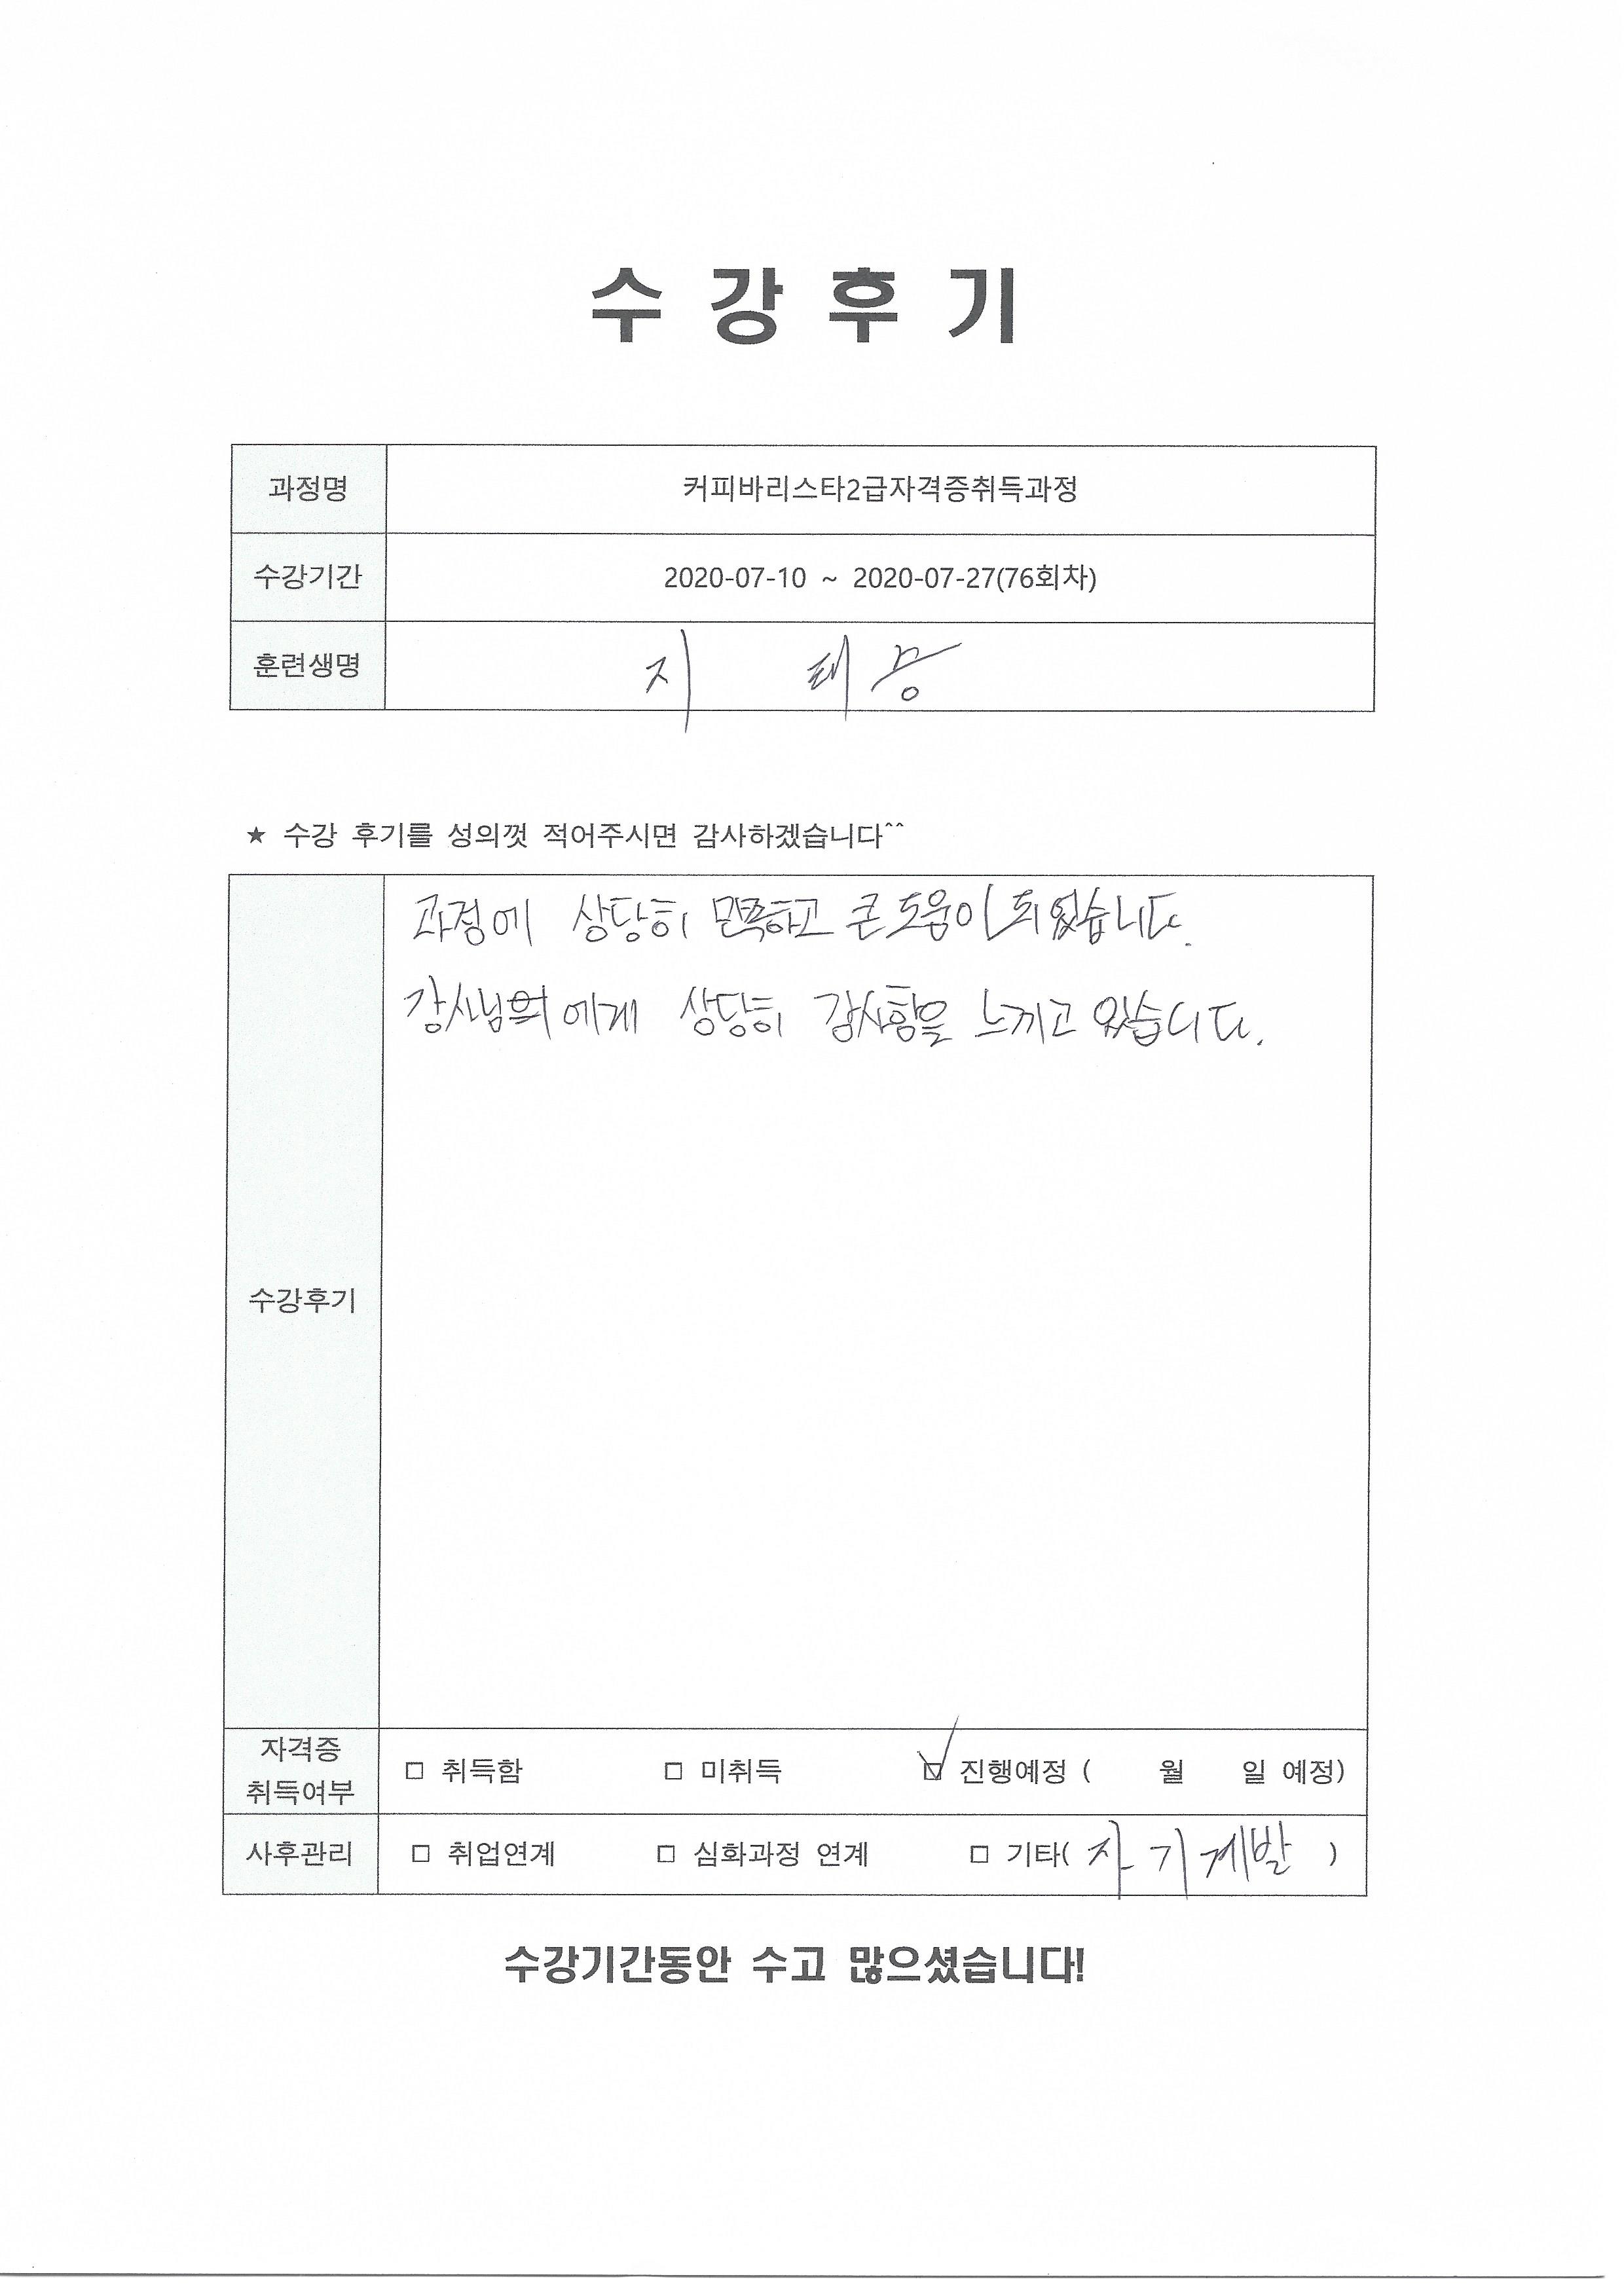 수 강 후 기
과정명 커피바리스타2급자격증취득과정
수강기간 2020-07-10 ~ 2020-07-27(76회차)
훈련생명 지 태
★ 수강 후기를 성의껏 적어주시면 감사하겠습니다^^
과정에 상당히 만족하고 큰 도움이 되었습니다.
강사님에게 상당히 감사함을 느끼고 있습니다.
수강후기
자격증
취득여부 □ 취득함 □ 미취득 ☑ 진행예정 ( 월 일 예정)
사후관리 □ 취업연계 □ 심화과정 연계 □ 기타( 자기계발 )
수강기간동안 수고 많으셨습니다!